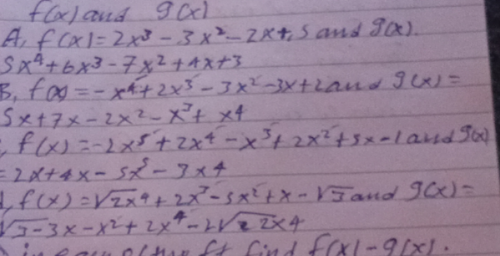 f(x) and g(x)
A, f(x) = 2x³ - 3x² - 2x + 5 and g(x).
5x⁴ + 6x³ - 7x² + 4x + 3
B, f(x) = -x⁴ + 2x³ - 3x² - 3x + 2 and g(x) =
5x + 7x - 2x² - x³ + x4
, f(x) = -2x⁵ + 2x⁴ - x³ + 2x² + 5x - 1 and g(x)
= 2x + 4x - 5x⁵ - 3x4
, f(x) = √2x⁴ + 2x³ - 5x² + x - √3 and g(x) =
√3 - 3x - x² + 2x⁴ - 2√2x4
find f(x) - g(x).